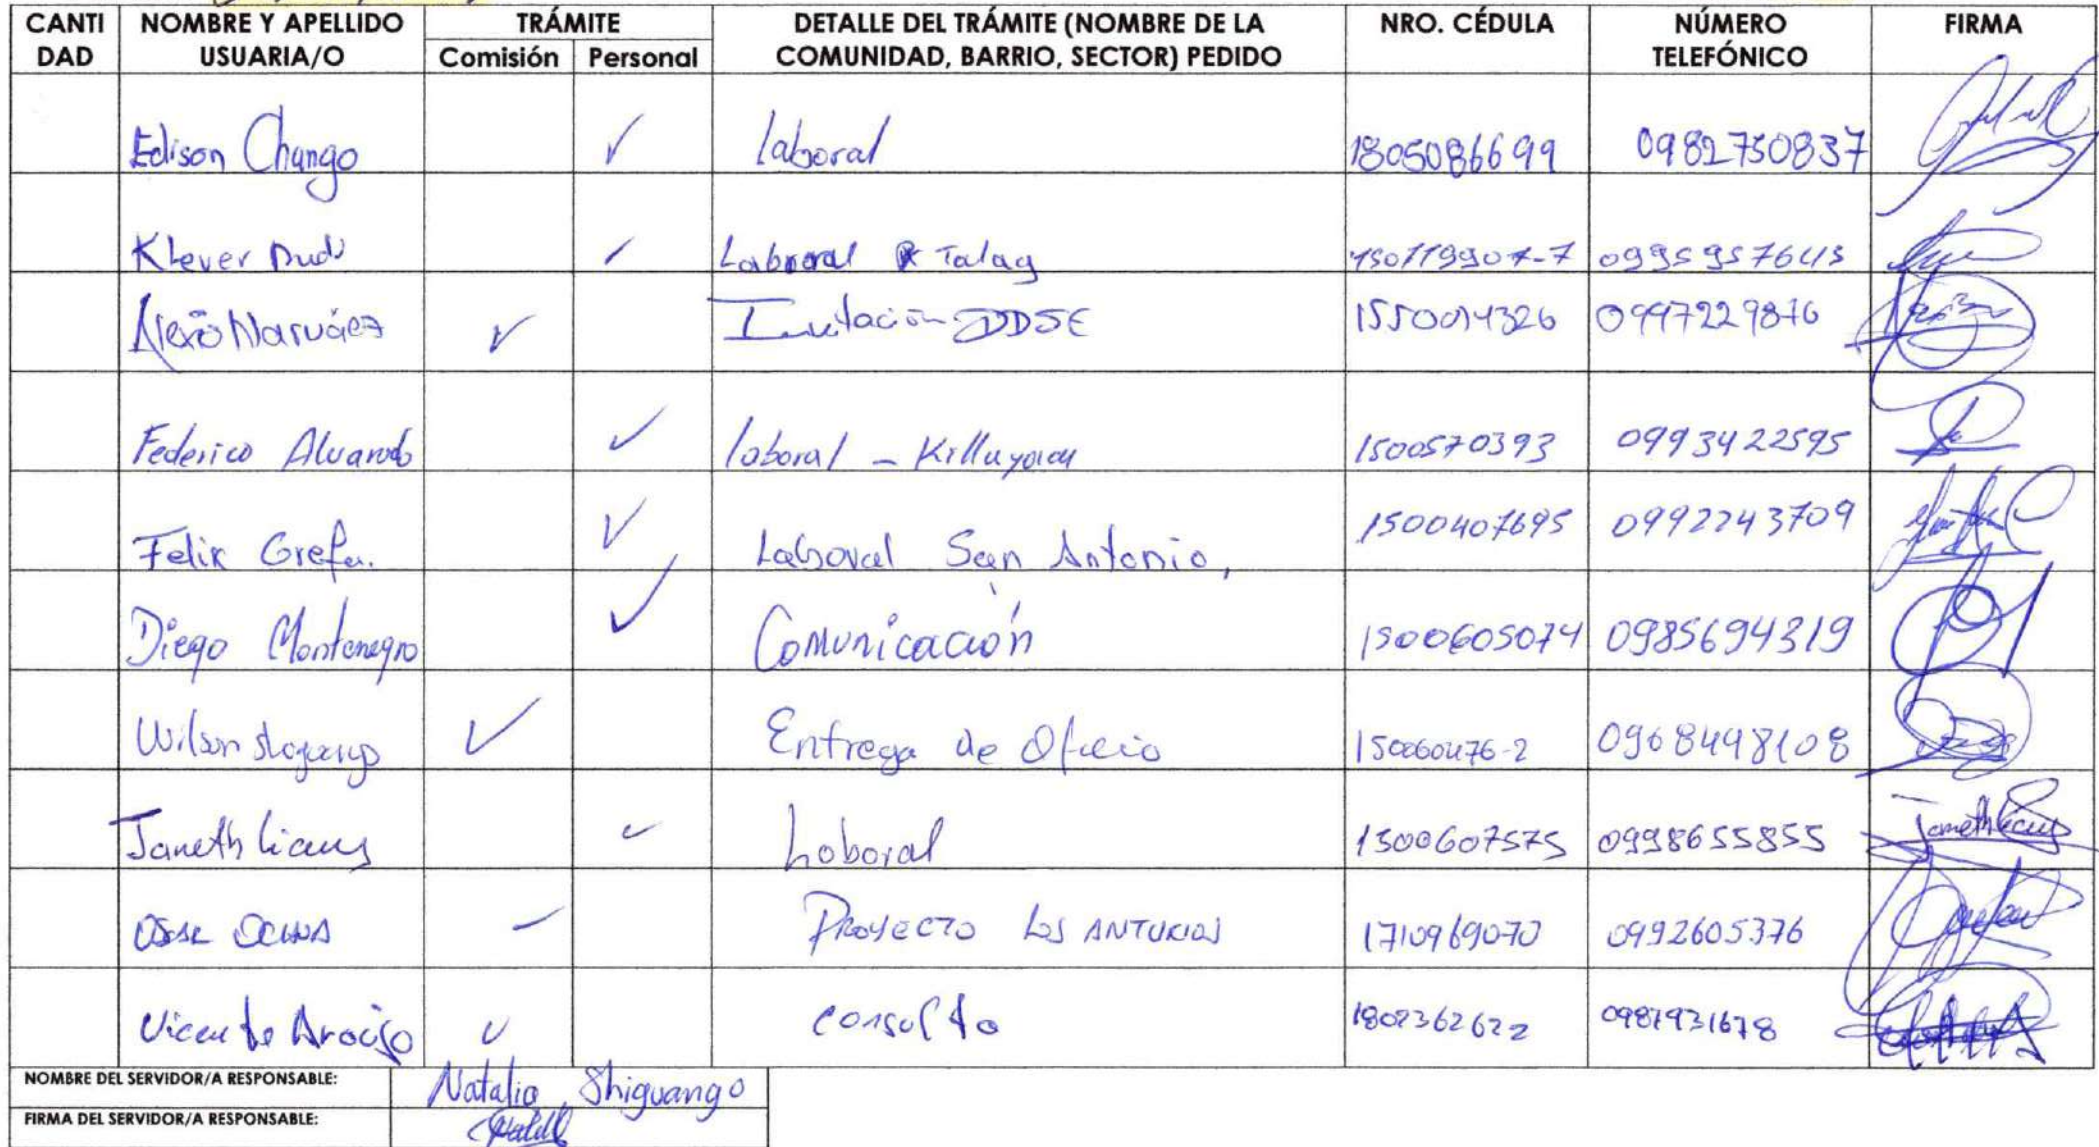 CANTI DAD NOMBRE Y APELLIDO USUARIA/O TRÁMITE Comisión Personal DETALLE DEL TRÁMITE (NOMBRE DE LA COMUNIDAD, BARRIO, SECTOR) PEDIDO NRO. CÉDULA NÚMERO TELEFÓNICO FIRMA
Edison Chango ✓ laboral 1805086699 0982750837
Klever ✓ Laboral Talag 0995957643
Narváez ✓ Invitación DDSE 0997229876
Federico Alvarado ✓ laboral - 1500570393 0993422595
Felix Grefa. ✓ Laboral San Antonio, 1500407695 0992243709
Diego Montenegro ✓ Comunicación 1500605074 0985694319
Wilson ✓ Entrega de Oficio 0968498108
Janeth ✓ Laboral 1500607575 0998655855
PROYECTO LOS ANTURIOS 1710969070 0992605376
Vicente Araújo ✓ consulta 1802362622 0987931678
NOMBRE DEL SERVIDOR/A RESPONSABLE: Natalia Shiguango
FIRMA DEL SERVIDOR/A RESPONSABLE: